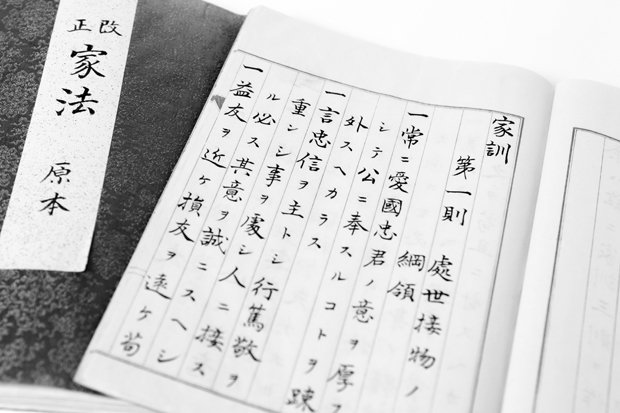 改正
家法
原本
家訓
第一則
處世接物ノ
綱領
一常ニ愛國忠君ノ意ヲ厚フ
シテ公ニ奉スルコトヲ踈
外スヘカラス
一言忠信ヲ主トシ行篤敬ヲ
重ンシ事ヲ處シ人ニ接ス
ル必ス其意ヲ誠ニスヘシ
一益友ヲ近ケ損友ヲ遠ケ苟